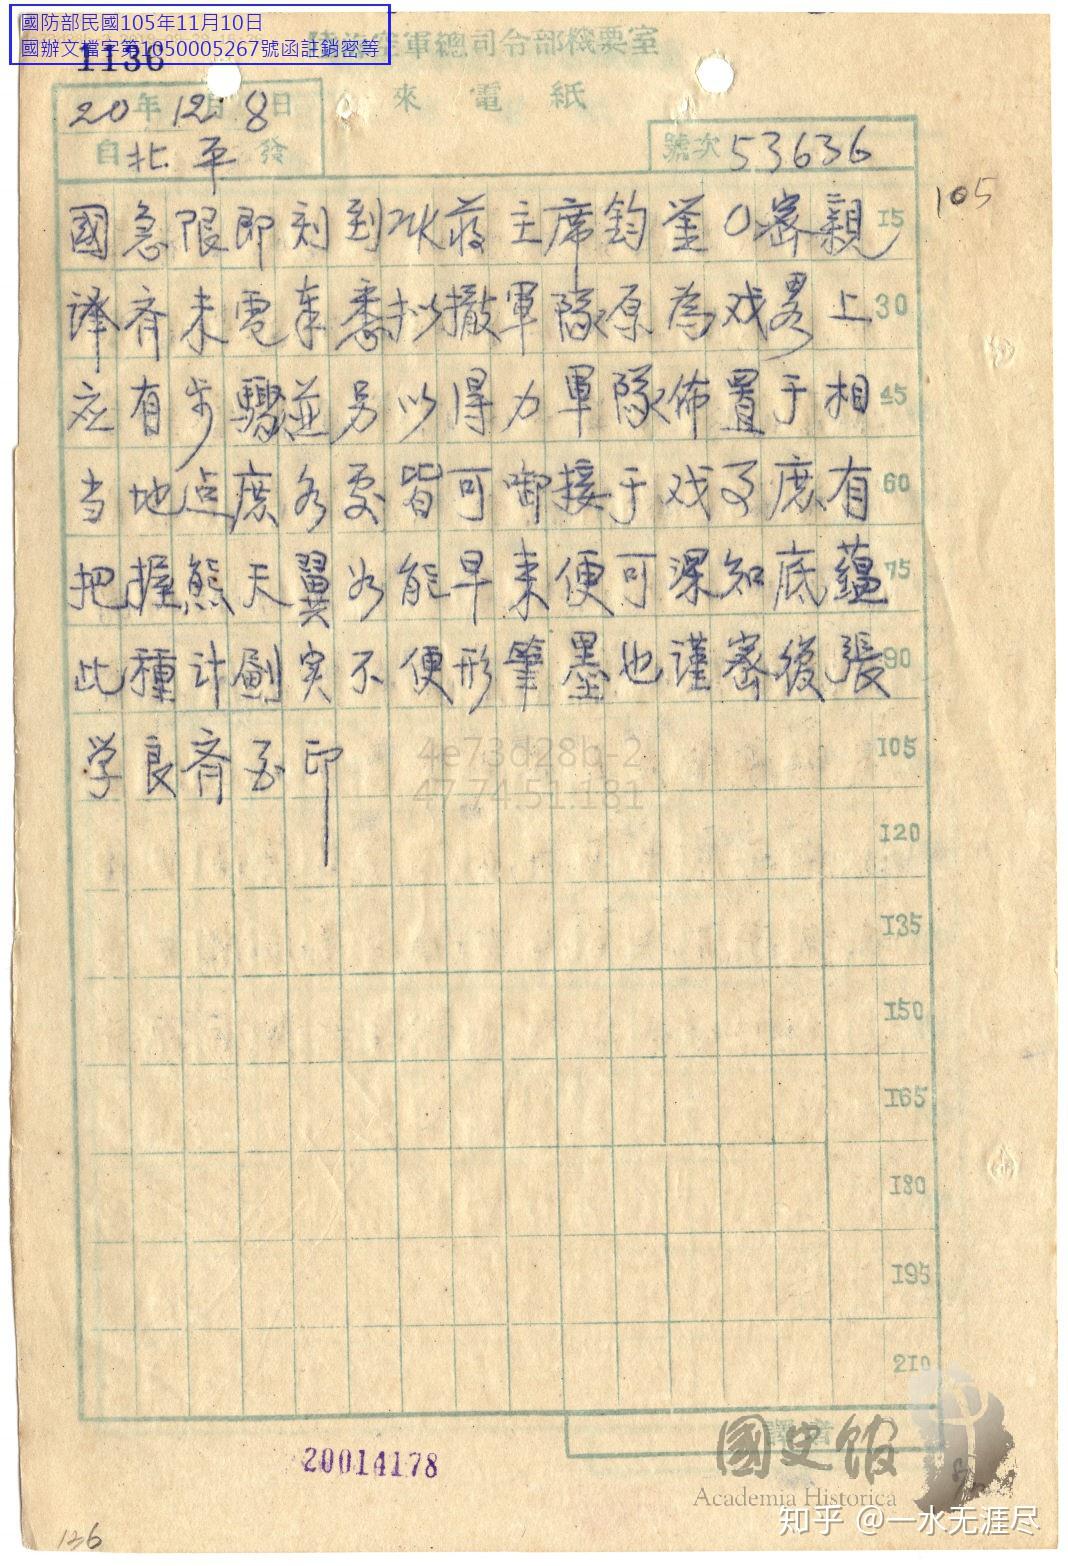 國防部民國105年11月10日
國辦文檔字第1050005267號函註銷密等
1136
陸海空軍總司令部機要室
來電紙
20年12月8日
自北平發
號次53636
105
國急限即刻到水蔣主席鈞鉴〇密親
15
譯齐未電奉悉拟撤軍隊原為戏畧上
30
应有步驟並另以得力軍隊佈置于相
45
当地点庶各处皆可啣接于戏事庶有
60
把握熊天翼如能早来便可深知底蘊
75
此種计劃实不便形筆墨也谨密復張
90
学良齐印
105
4e73d28b-2
47.74.51.181
120
135
150
165
180
195
210
譯者
20014178
國史館
Academia Historica
知乎 @一水无涯尽
136